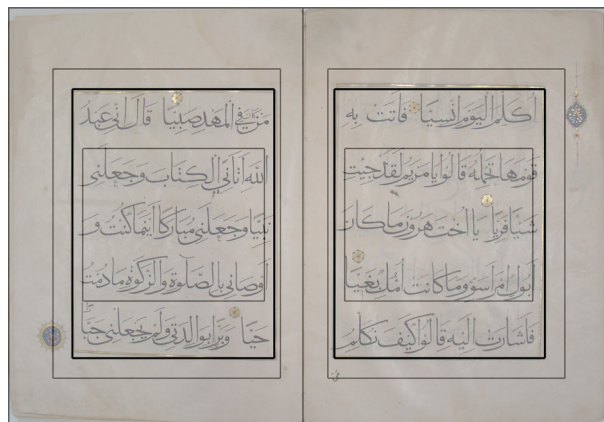 اكلم اليوم انسيا فاتت به
قومها تحمله قالوا يا مريم لقد جيت
شيئا فريا يا اخت هرون ما كان
ابوك امرا سوء وما كانت امك بغيا
فاشارت اليه قالوا كيف نكلم
من في المهد صبيا قال اني عبد
الله اتاني الكتاب وجعلني
نبيا وجعلني مباركا اينما كنت و
اوصاني بالصلوة والزكوة ما دمت
حيا وبرا بوالدتي ولم يجعلني جبا